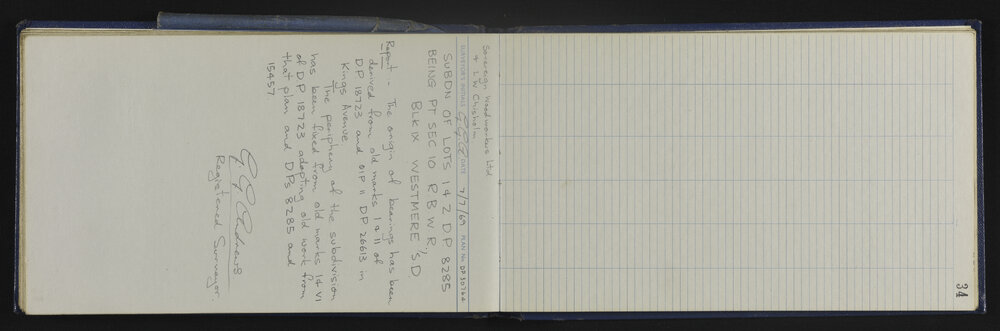 Sovereign Woodworkers Ltd
& L.W Chisholm
SURVEYOR'S INITIALS DATE 7/7/69 PLAN No. DP 50764
SUBDN OF LOTS 1 & 2 D P 8285
BEING PT SEC 10 R B W R.,
BLK IX WESTMERE S D
Report - The origin of bearings has been
derived from old marks I & II of
DP 18723 and OIP II DP 26613 in
Kings Avenue
The periphery of the subdivision
has been fixed from old marks I & VI
of DP 18723 adopting old work from
that plan and DPs 8285 and
15457.
G G Andrews
Registered Surveyor.
34